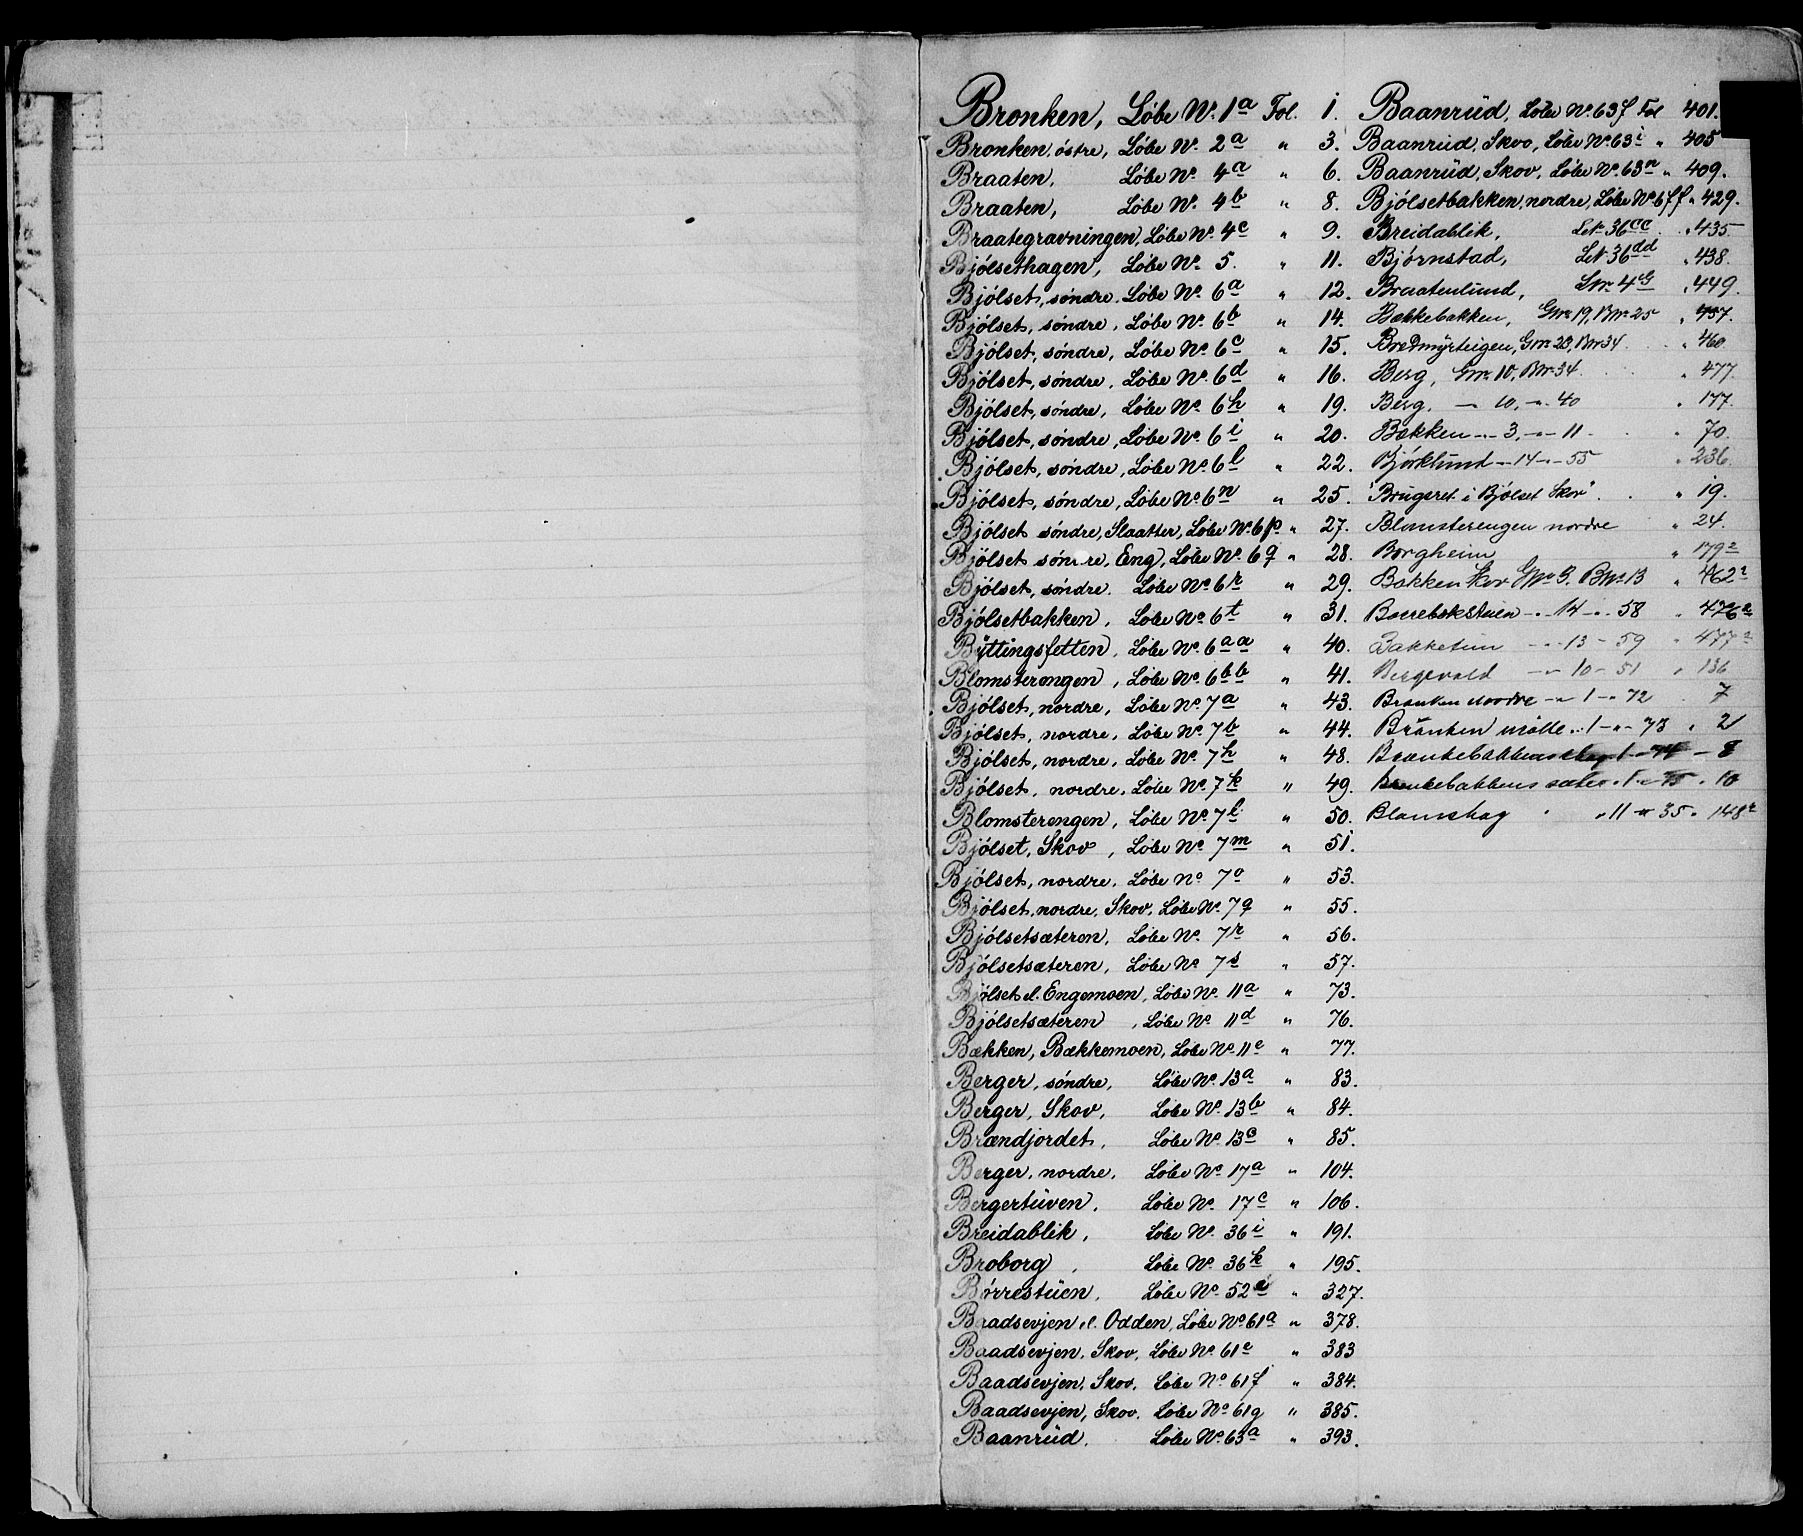 Bronken, Løbe No. 1a Fol. 1.
Bronken, østre, Løbe No. 2a " 3.
Braaten, Løbe No. 4a " 6.
Braaten, Løbe No. 4b " 8.
Braategravningen, Løbe No. 4c " 9.
Bjølsethagen, Løbe No. 5. " 11.
Bjølset, søndre, Løbe No. 6a " 12.
Bjølset, søndre, Løbe No. 6b " 14.
Bjølset, søndre, Løbe No. 6c " 15.
Bjølset, søndre, Løbe No. 6d " 16.
Bjølset, søndre, Løbe No. 6h " 19.
Bjølset, søndre, Løbe No. 6i " 20.
Bjølset, søndre, Løbe No. 6l " 22.
Bjølset, søndre, Løbe No. 6n " 25.
Bjølset søndre, Slaatter, Løbe No. 6p " 27.
Bjølset søndre, Eng, Løbe No. 6q " 28.
Bjølset, søndre. Løbe No. 6r " 29.
Bjølsetbakken, Løbe No. 6t " 31.
Byttingsfetten, Løbe No. 6aa " 40.
Blomsterengen, Løbe No. 6bb " 41.
Bjølset, nordre, Løbe No. 7a " 43.
Bjølset, nordre, Løbe No. 7b " 44.
Bjølset, nordre, Løbe No. 7h " 48.
Bjølset, nordre, Løbe No. 7k " 49.
Blomsterengen, Løbe No. 7l " 50.
Bjølset, Skov, Løbe No. 7m " 51.
Bjølset, nordre, Løbe No. 7o " 53.
Bjølset, nordre, Skov, Løbe No. 7q " 55.
Bjølsetsæteren, Løbe No. 7r " 56.
Bjølsetsæteren, Løbe No. 7s " 57.
Bjølset el. Engemoen, Løbe No. 11a " 73.
Bjølsetsæteren, Løbe No. 11d " 76.
Bækken, Bækkemoen, Løbe No. 11e " 77.
Berger, søndre, Løbe No. 13a " 83.
Berger, Skov, Løbe No. 13b " 84.
Brændjordet, Løbe No. 13c " 85.
Berger, nordre, Løbe No. 17a " 104.
Bergertuven, Løbe No. 17c " 106.
Breidablik, Løbe No. 36i " 191.
Broborg, Løbe No. 36k " 195.
Børrestuen, Løbe No. 52 " 327.
Baadsevjen el. Odden, Løbe No. 61a " 378.
Baadsevjen, Skov, Løbe No. 61e " 383
Baadsevjen, Skov, Løbe No. 61f " 384.
Baadsevjen, Skov, Løbe No. 61g " 385.
Baanrud, Løbe No. 63a " 393.
Baanrud, Løbe No. 63f Fol 401.
Baanrud, Skov, Løbe No. 63i " 405
Baanrud, Skov, Løbe No. 63n " 409.
Bjølsetbakken, nordre, Løbe No. 6ff " 429.
Breidablik, Lit. 36cc " 435
Bjørnstad, Lit. 36dd " 438.
Braatenlund, Lnr. 4g " 449.
Bækkebakken, Gnr. 19, Bnr. 25 " 457.
Bredmyrteigen, Gnr. 28, Bnr 34 " 460.
Berg, Gnr. 10, Bnr. 34 " 477.
Berg, — 10, " 40 " 177.
Bækken " 3, " 11 " 70.
Bjørklund " 14 " 55 " 236.
"Brugsret i Bjølset Skov" " 19.
Blomsterengen nordre " 24.
Borgheim " 179a
Bakken Skov Gnr. 3. Bnr. 13 " 462a
14 " 58 " 476a
Bakketun " 13 " 59 " 477a
Bergvold " 10 " 51 " 136
Bronken nordre " 1 " 72 7
Brånken mølle " 1 " 73 " 2
1 " 74 " 8
Bronkebakkens sæter " 1 " 75 " 10
Blomshag " 11 " 35 " 148a